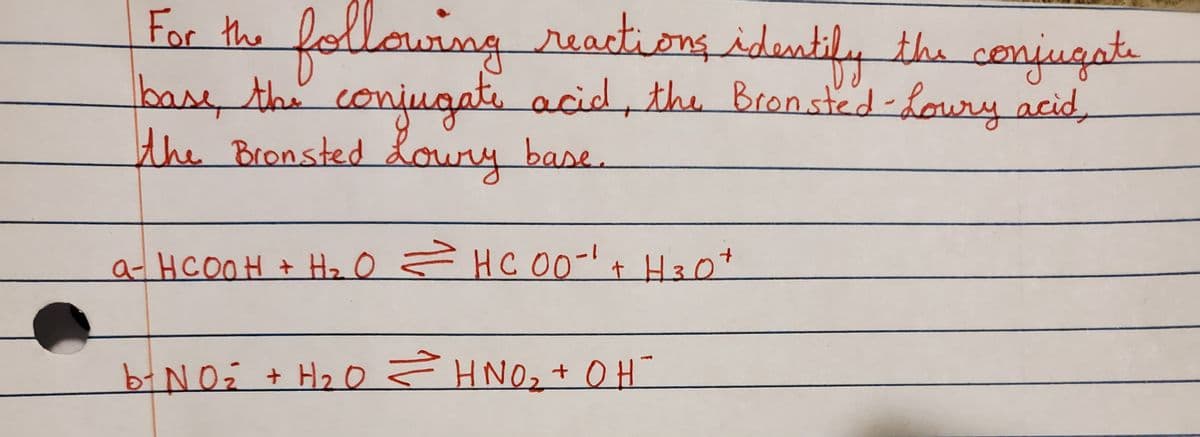 For the following reactions, identify the conjugate
base, the conjugate acid, the Bronsted-Lowry acid,
the Bronsted Lowry base.
a- HCOOH + H₂O ⇌ HCOO⁻¹ + H₃O⁺
b- NO₂⁻ + H₂O ⇌ HNO₂ + OH⁻